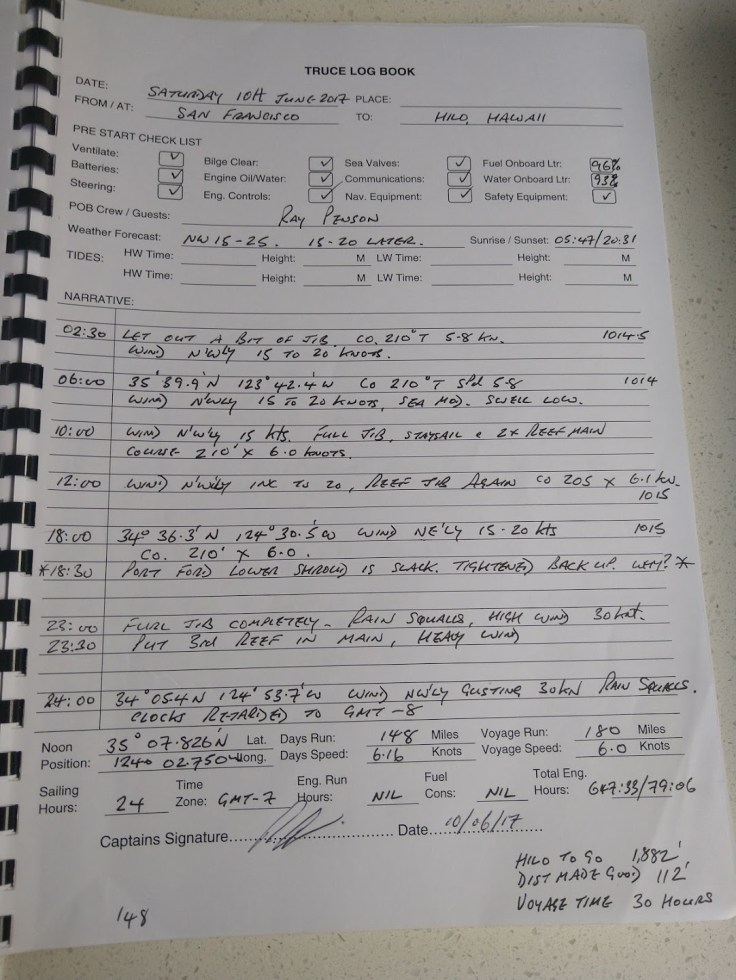 TRUCE LOG BOOK
DATE: SATURDAY 10th JUNE 2017 PLACE:
FROM / AT: SAN FRANCISCO TO: HILO, HAWAII
PRE START CHECK LIST
Ventilate: ✓ Bilge Clear: ✓ Sea Valves: ✓ Fuel Onboard Ltr: 96%
Batteries: ✓ Engine Oil/Water: ✓ Communications: ✓ Water Onboard Ltr: 93%
Steering: ✓ Eng. Controls: ✓ Nav. Equipment: ✓ Safety Equipment: ✓
POB Crew / Guests: RAY PENSON
Weather Forecast: NW 15-25. 15-20 LATER. Sunrise / Sunset: 05:47/20:31
TIDES: HW Time: Height: M LW Time: Height: M
HW Time: Height: M LW Time: Height: M
NARRATIVE:
02:30 LET OUT A BIT OF JIB. CO. 210°T 5.8 KN. 1014.5
WIND N'WLY 15 TO 20 KNOTS.
06:00 35° 39.9'N 123° 42.4'W CO 210°T SPD 5.8 1014
WIND N'WLY 15 TO 20 KNOTS, SEA MOD. SWELL LOW.
10:00 WIND N'W'LY 15 kts. FULL JIB, STAYSAIL & 2x REEF MAIN
COURSE 210° x 6.0 KNOTS.
12:00 WIND N'WLY INC TO 20, REEF JIB AGAIN CO 205 x 6.1 kn.
1015
18:00 34° 36.3'N 124° 30.5'W WIND NE'LY 15-20 kts 1015
CO. 210° x 6.0.
*18:30 PORT FORD LOWER SHROUD IS SLACK. TIGHTENED BACK UP. WHY? *
23:00 FURL JIB COMPLETELY - RAIN SQUALLS, HIGH WIND 30 knt.
23:30 PUT 3rd REEF IN MAIN, HEAVY WIND
24:00 34° 05.4 N 124° 53.7'W WIND NW'LY GUSTING 30KN RAIN SQUALLS.
CLOCKS RETARDED TO GMT-8
Noon 35° 07.826'N Lat. Days Run: 148 Miles Voyage Run: 180 Miles
Position: 124° 02.750'W Long. Days Speed: 6.16 Knots Voyage Speed: 6.0 Knots
Sailing Hours: 24 Time Zone: GMT-7 Eng. Run Hours: NIL Fuel Cons: NIL Total Eng. Hours: 647:33/79:06
Captains Signature Date 10/06/17
HILO TO GO 1,882'
DIST MADE GOOD 112'
VOYAGE TIME 30 HOURS
148